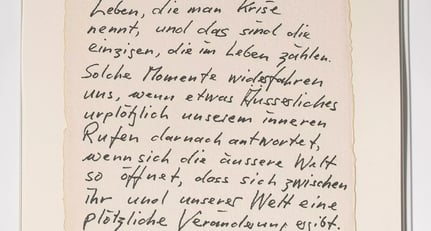 Leben, die man Krise
nennt, und das sind die
einzigen, die im Leben zählen.
Solche Momente widerfahren
uns, wenn etwas Äusserliches
urplötzlich unserem inneren
Rufen darnach antwortet,
wenn sich die äussere Welt
so öffnet, dass sich zwischen
ihr und unserer Welt eine
plötzliche Veränderung ergibt.